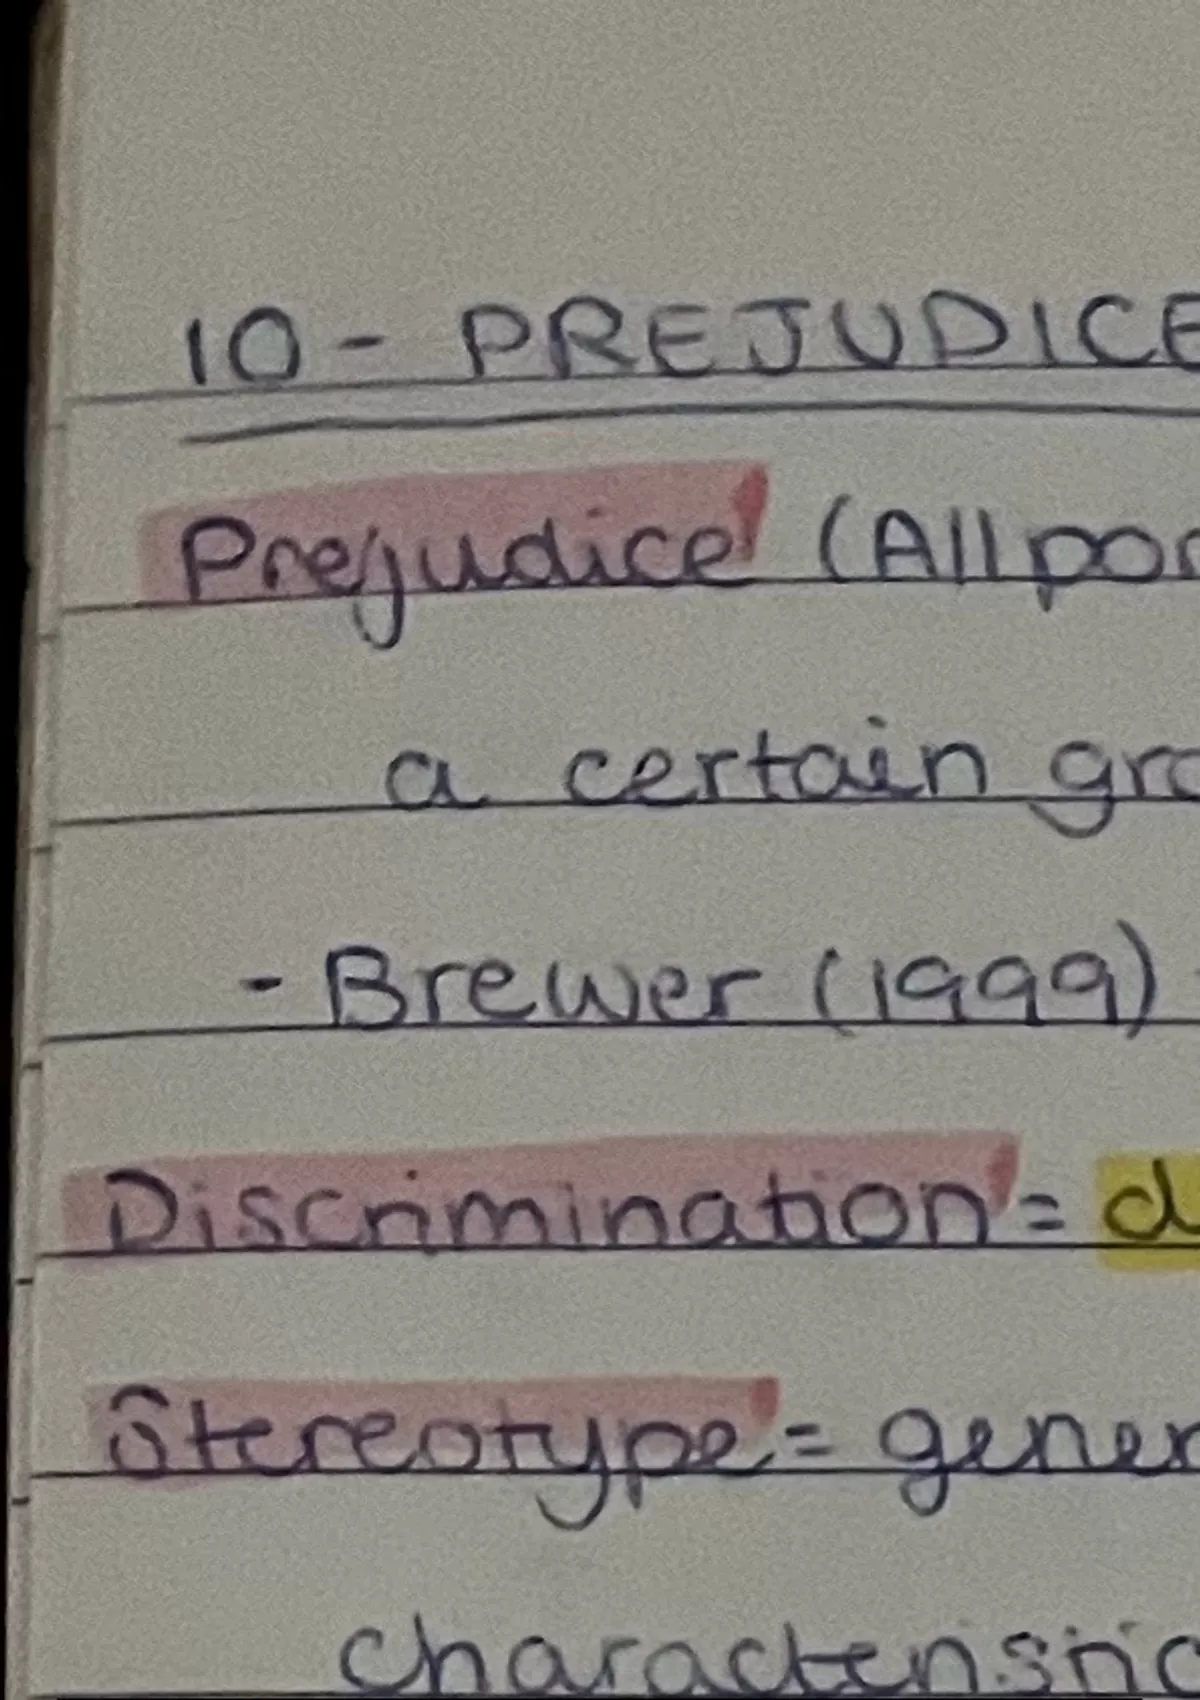 10 - PREJUDICE
Prejudice (Allpor
a certain gro
- Brewer (1999)
Discrimination = d
Stereotype = gener
characteristic